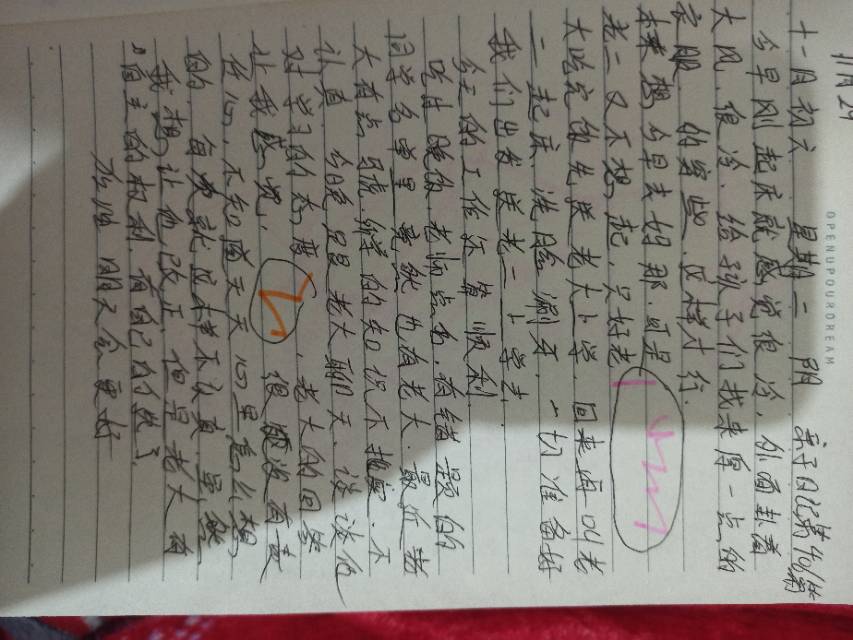 11月29
OPENUPOURDREAM
十一月初六 星期二 阴 亲子日记第401篇
今早刚起床就感觉很冷，外面刮着
大风，很冷，给孩子们找来厚一点的
衣服，的穿些，这样才行。
本来想今早去妈那，可是
老二又不想起，只好老
大吃完饭先送老大上学，回来再叫老
二起床，洗脸涮牙，一切准备好
我们出发送老二上学去。
今天的工作还算顺利。
吃过晚饭，老师点名，有错题的
同学名单里竟然也有老大，最近老
大有点马虎，学的知识不扎实，不
认真，今晚跟老大聊天，谈谈他
对学习的态度，老大的回答
让我感觉，很颓没面责
任心，不知道天天心里怎么想
的，每天就这样不认真，虽然
我想让他改正，但是老大有
自主的权利，有自己的想法了。
加油 明天会更好